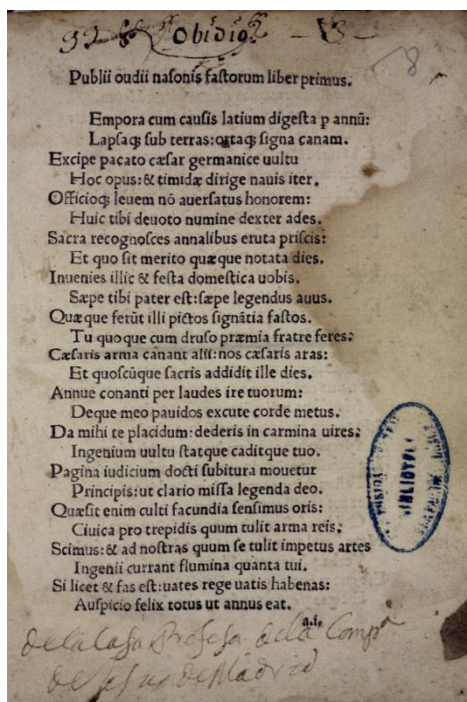 Obidio
Publii oudii nasonis fastorum liber primus.
Empora cum causis latium digesta p annū:
Lapsaq; sub terras:ortaq; signa canam.
Excipe pacato cæsar germanice uultu
Hoc opus:& timidæ dirige nauis iter.
Officioq; leuem nō auersatus honorem:
Huic tibi deuoto numine dexter ades.
Sacra recognosces annalibus eruta priscis:
Et quo sit merito quæque notata dies.
Inuenies illic & festa domestica uobis.
Sæpe tibi pater est:sæpe legendus auus.
Quæque ferūt illi pictos signātia fastos.
Tu quoque cum druso præmia fratre feres:
Cæsaris arma canant alii:nos cæsaris aras:
Et quoscūque sacris addidit ille dies.
Annue conanti per laudes ire tuorum:
Deque meo pauidos excute corde metus.
Da mihi te placidum:dederis in carmina uires:
Ingenium uultu statque caditque tuo.
Pagina iudicium docti subitura mouetur
Principis:ut clario missa legenda deo.
Quæsit enim culti facundia sensimus oris:
Ciuica pro trepidis quum tulit arma reis:
Scimus:& ad nostras quum se tulit impetus artes
Ingenii currant flumina quanta tui.
Si licet & fas est:uates rege uatis habenas:
Auspicio felix totus ut annus eat.
a.i.
de la Casa Profesa de la Compª
de Jesus de Madrid